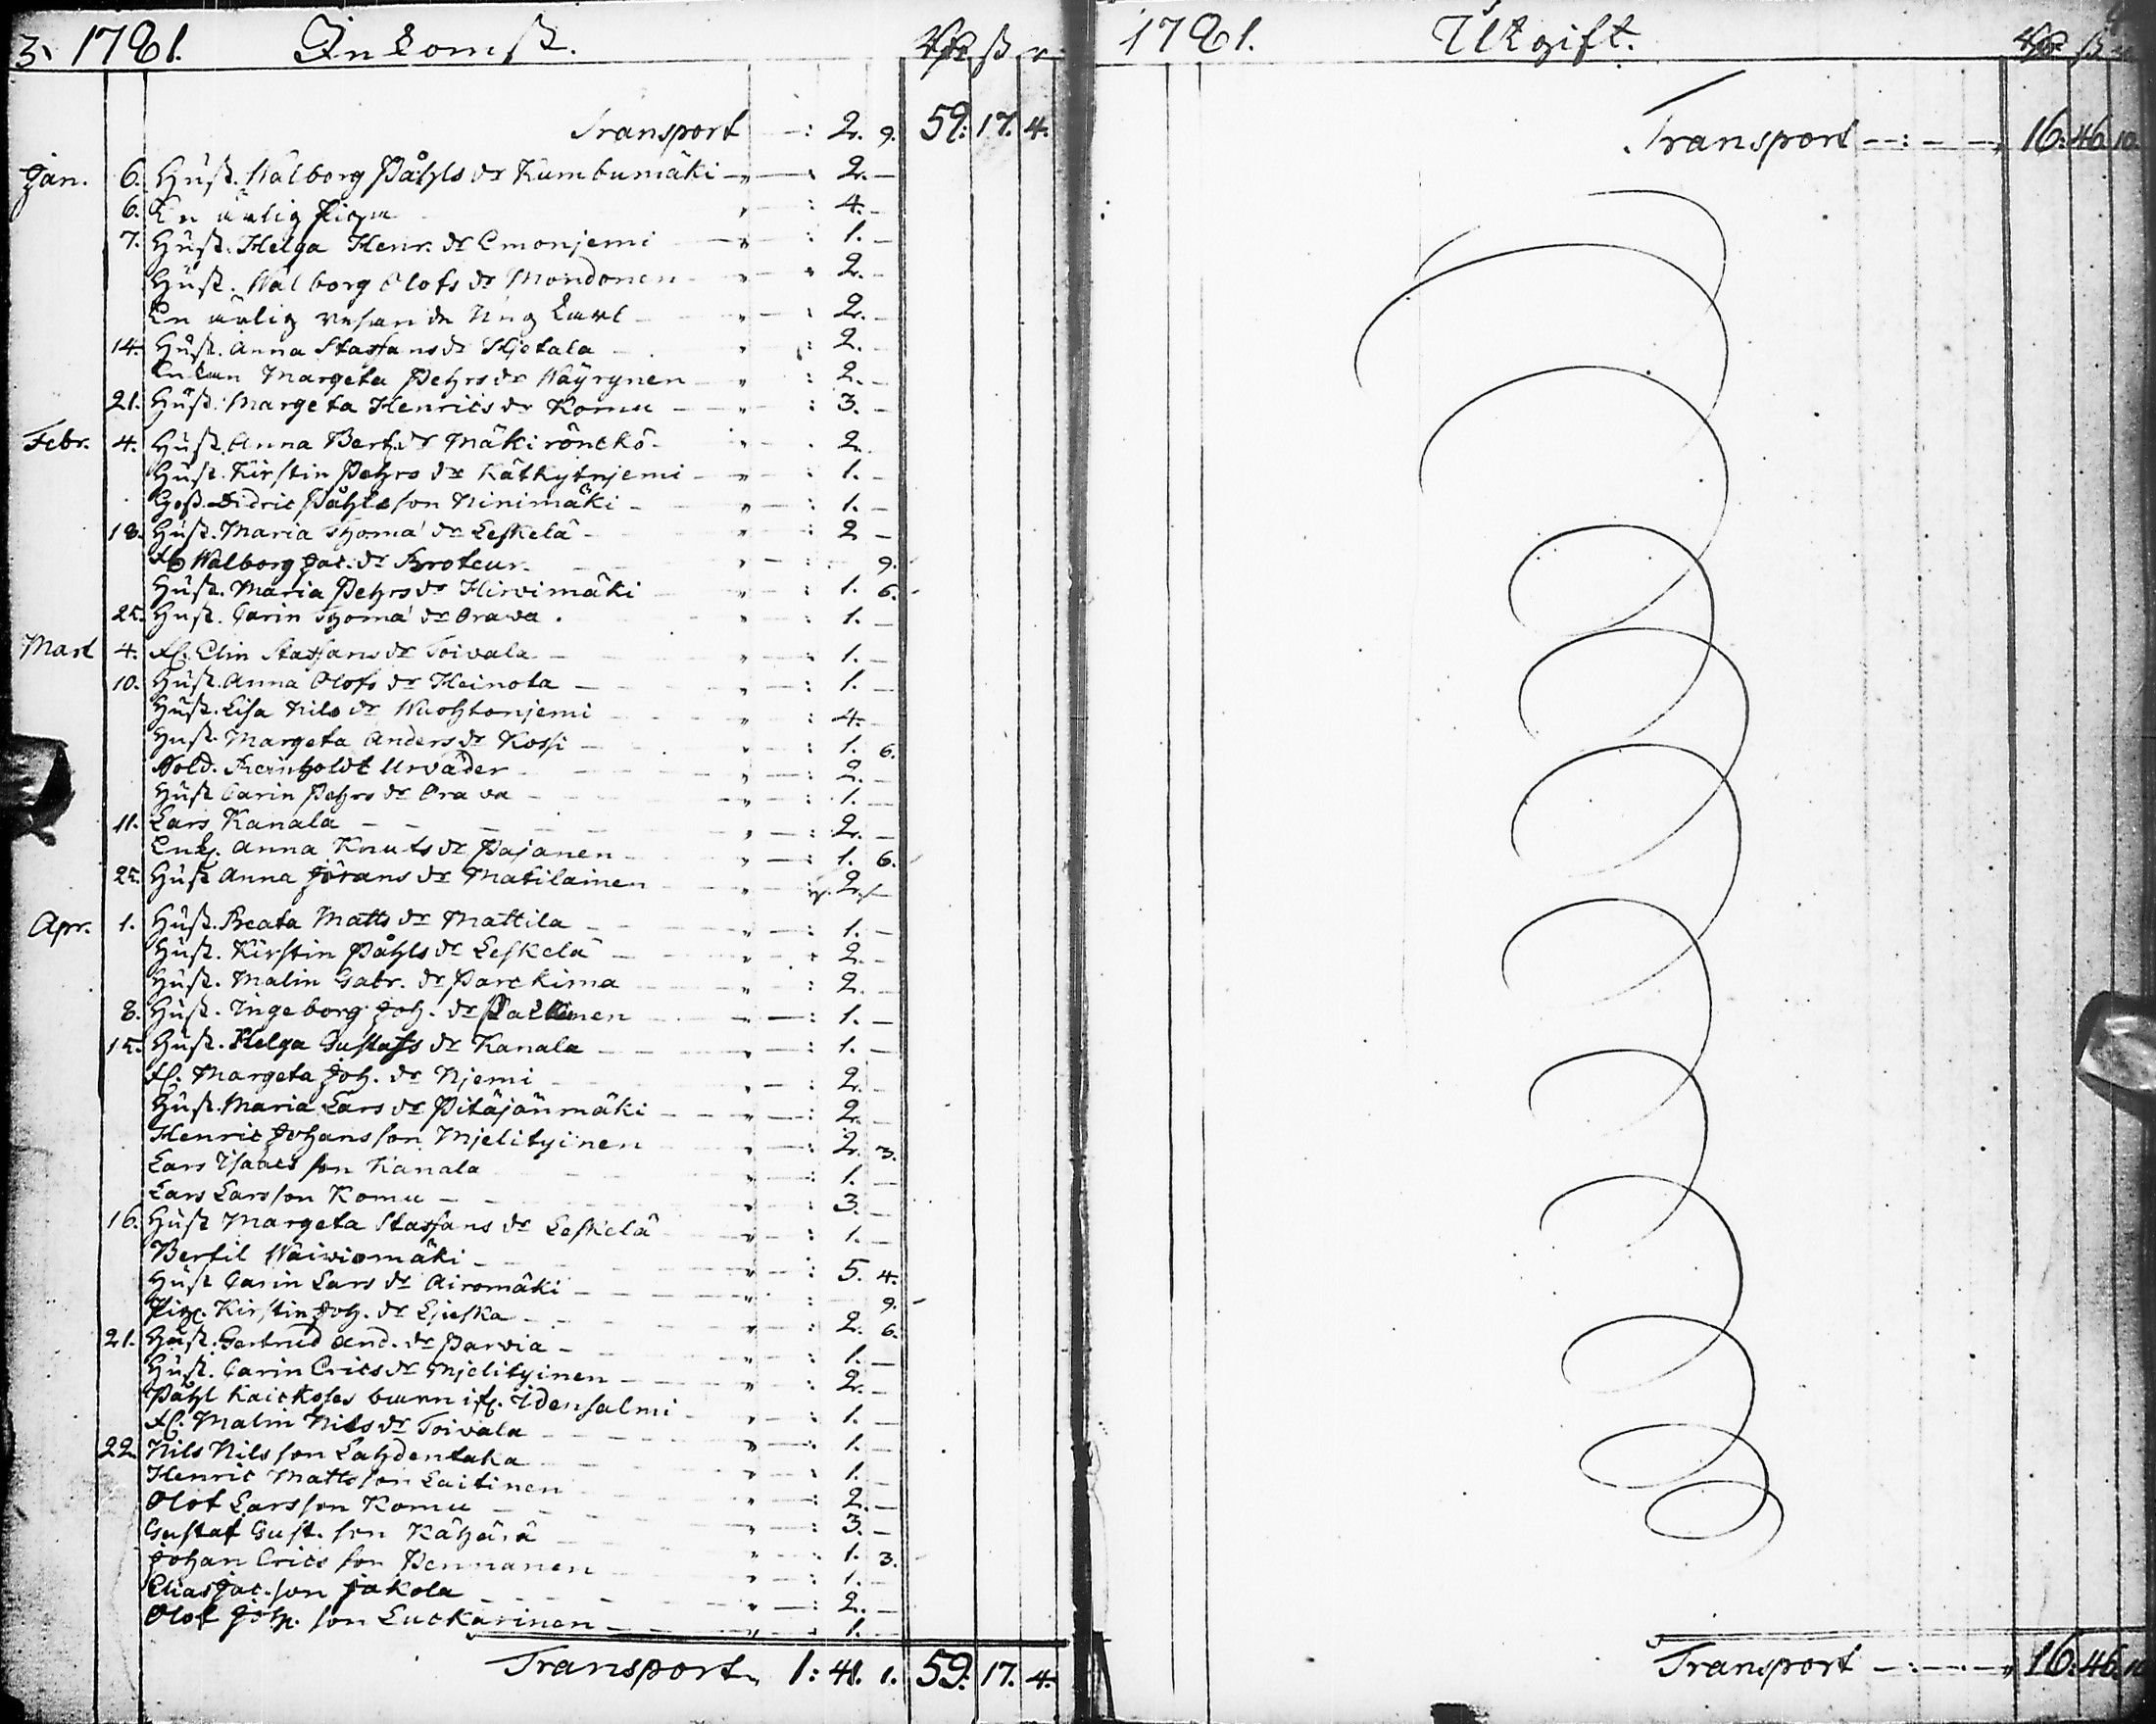 3. 1781. Inkomst. Rdr ß r
Transport -: 2. 9. 59: 17. 4.
Jan. 6. Hust. Walborg Påhls dr Kumbumäki - 2. -
6. En ärlig Piga : 4. -
7. Hust. Helga Henr. dr Emonjemi : 1. -
Hust. Walborg Olofs dr Mondonen 2. -
En ärlig resande : 2. -
14. Hust. Anna Staffans dr Hjetala : 2. -
Enkan Margeta Pehrs dr Wäyrynen : 2. -
21. Hust. Margeta Henrics dr Komu : 3. -
Febr. 4. Hust. Anna Bert. dr Mäkirönckö 2.
Hust. Kirstin Pehrs dr Kätkytnjemi : 1. -
Didric Påhlsson Ninimäki : 1. -
18. Hust. Maria Thoma dr Leskelä : 2 -
Walborg Jac. dr Broteur 9.
Hust. Maria Pehrs dr Hirvimäki : 1. 6.
25. Hust. Carin Thoma dr Orava : 1. -
Mart 4. Elin Staffans dr Toivala : 1. -
10. Hust. Anna Olofs dr Heinola : 1. -
Hust. Lisa Nils dr Wuohtonjemi : 4. -
Hust. Margeta Anders dr Kossi : 1. 6.
Sold. Reinholdt Urväder : 2. -
Hust Carin Pehrs dr Orava : 1. -
11. Lars Kanala : 2. -
Enk. Anna Knuts dr Pajanen : 1. 6.
25. Hust Anna Jörans dr Matilainen : 2. -
Apr. 1. Hust. Beata Matts dr Mattila : 1. -
Hust. Kirstin Påhls dr Leskelä 2. -
Hust. Malin Gabr. dr Parckima : 2. -
8. Hust. Ingeborg Joh. dr : 1. -
15. Hust. Helga Gustafs dr Kanala : 1. -
Margeta Joh. dr Njemi : 2. -
Hust. Maria Lars dr Pitäjänmäki : 2. -
Henric Johansson Mjelityinen : 2. 3.
Lars Isaacsson Kanala : 1. -
Lars Larsson Komu : 3. -
16. Hust Margeta Staffans dr Leskelä : 1. -
Bertil Wäiviömäki : 5. 4.
Hust Carin Lars dr Airomäki : 9.
Pig. Kirstin Joh. dr : 2. 6.
21. Hust. Gertrud And. dr Parvia : 1. -
Hust. Carin Erics dr Mjelityinen : 2. -
Påhl Kaickoses barn Idensalmi : 1. -
Malin Nils dr Toivala : 1. -
22. Nils Nilsson Lahdentaka : 1. -
Henric Mattsson Laitinen : 2. -
Olof Larsson Komu : 3. -
Gustaf Gust. son Kähärä : 1. 3.
Johan Ericsson Pennanen : 1. -
Elias Jac. son Jakola : 2. -
Olof Joh. son Luckarinen : 1. -
Transport 1: 41. 1. 59. 17. 4.
1781. Utgift. Rdr ß r
Transport -:- 16. 46. 10.
Transport -:- 16: 46. 10